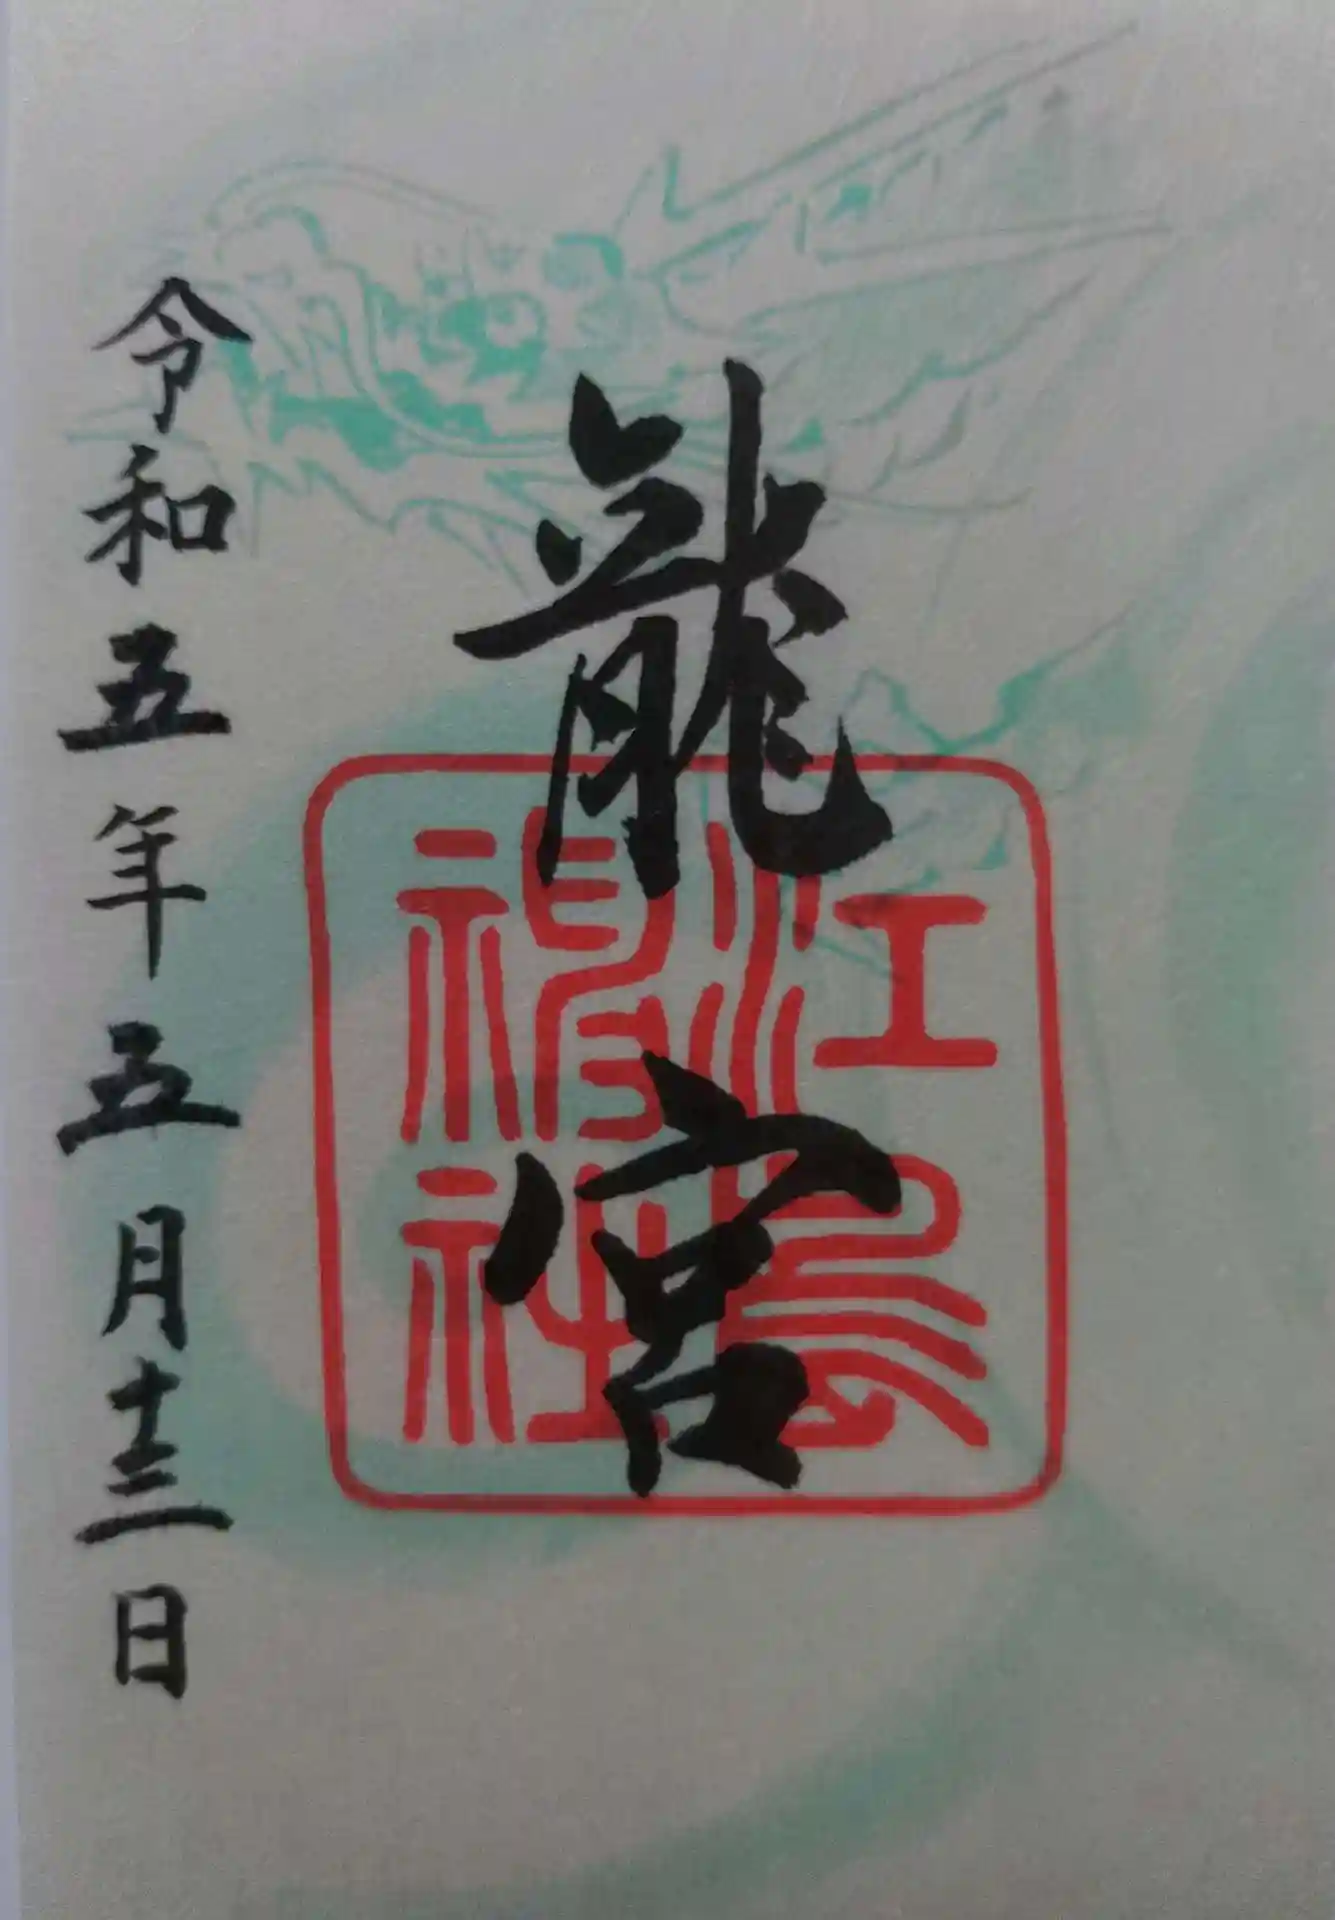 龍宮
江島
神社
令和五年五月十三日